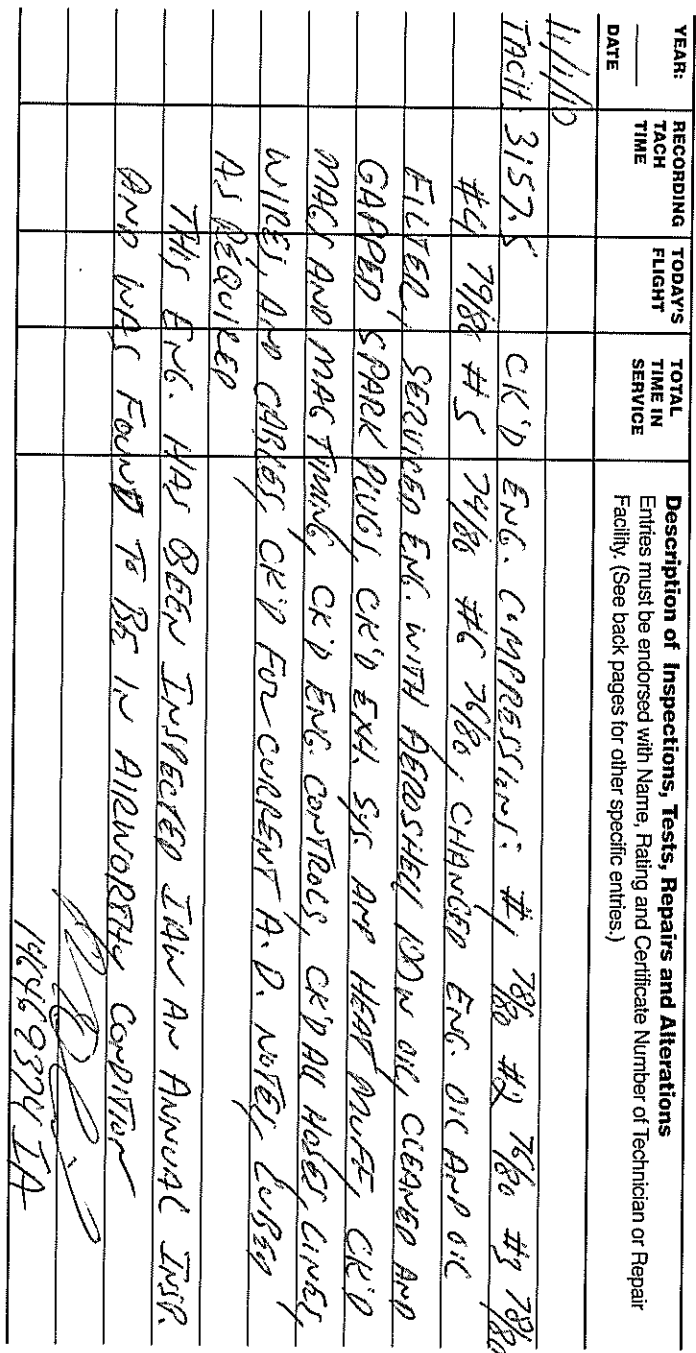 YEAR:
DATE
RECORDING
TACH
TIME
TODAY'S
FLIGHT
TOTAL
TIME IN
SERVICE
Description of Inspections, Tests, Repairs and Alterations
Entries must be endorsed with Name, Rating and Certificate Number of Technician or Repair
Facility. (See back pages for other specific entries.)
11/1/10
TACH 3157.5 CK'D ENG. COMPRESSIONS: #1 78/80 #2 76/80 #3 78/80
#4 79/80 #5 74/80 #6 76/80, CHANGED ENG. OIL AND OIL
FILTER, SERVICED ENG. WITH AEROSHELL 100W OIL, CLEANED AND
GAPPED SPARK PLUGS, CK'D EXH. SYS. AND HEAT MUFF, CK'D
MAGS AND MAG TIMING, CK'D ENG. CONTROLS, CK'D ALL HOSES, LINES,
WIRES, AND CABLES, CK'D FOR CURRENT A.D. NOTES, LUBED
AS REQUIRED
THIS ENG. HAS BEEN INSPECTED IAW AN ANNUAL INSP.
AND WAS FOUND TO BE IN AIRWORTHY CONDITION
IA